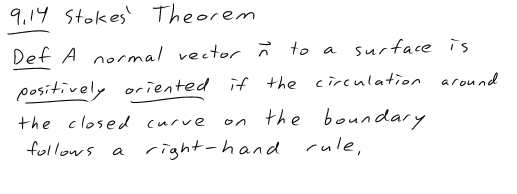 9.14 Stokes' Theorem
Def A normal vector n⃗ to a surface is
positively oriented if the circulation around
the closed curve on the boundary
follows a right-hand rule.